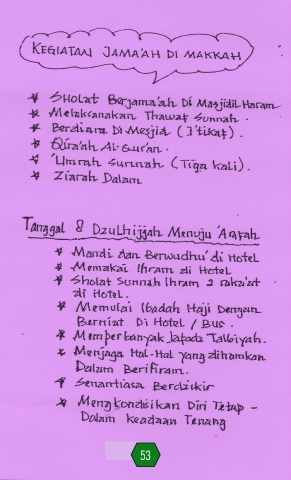 KEGIATAN JAMA'AH DI MAKKAH
* SHOLAT Berjama'ah Di Masjidil Haram
* Melaksanakan Thawaf Sunnah.
* Berdiam Di Mesjid (I'tikaf).
* Qira'ah Al-Qur'an.
* 'Umrah Sunnah (Tiga Kali).
* Ziarah Dalam
Tanggal 8 Dzulhijjah Menuju 'Arafah
* Mandi dan Berwudhu' di Hotel
* Memakai Ihram di Hotel
* Sholat Sunnah Ihram 2 raka'at
di Hotel.
* Memulai Ibadah Haji Dengan
Berniat Di Hotel / Bus.
* Memperbanyak lafadz Talbiyah.
* Menjaga Hal-Hal yang diharamkan
Dalam Berihram.
* Senantiasa Berdzikir
* Mengkondisikan Diri Tetap -
Dalam Keadaan Tenang
53